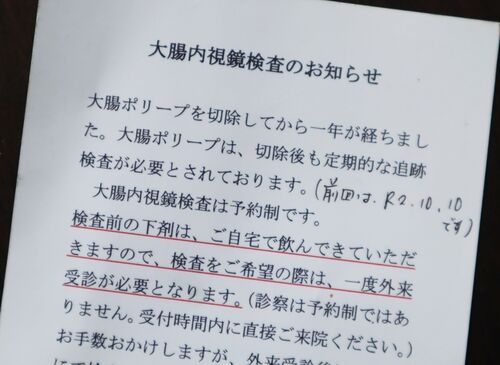 大腸内視鏡検査のお知らせ
大腸ポリープを切除してから一年が経ちまし
た。大腸ポリープは、切除後も定期的な追跡
検査が必要とされております。(前回は、R2.10.10
です)
大腸内視鏡検査は予約制です。
検査前の下剤は、ご自宅で飲んできていただ
きますので、検査をご希望の際は、一度外来
受診が必要となります。(診察は予約制ではあ
りません。受付時間内に直接ご来院ください。)
お手数おかけしますが、外来受診後